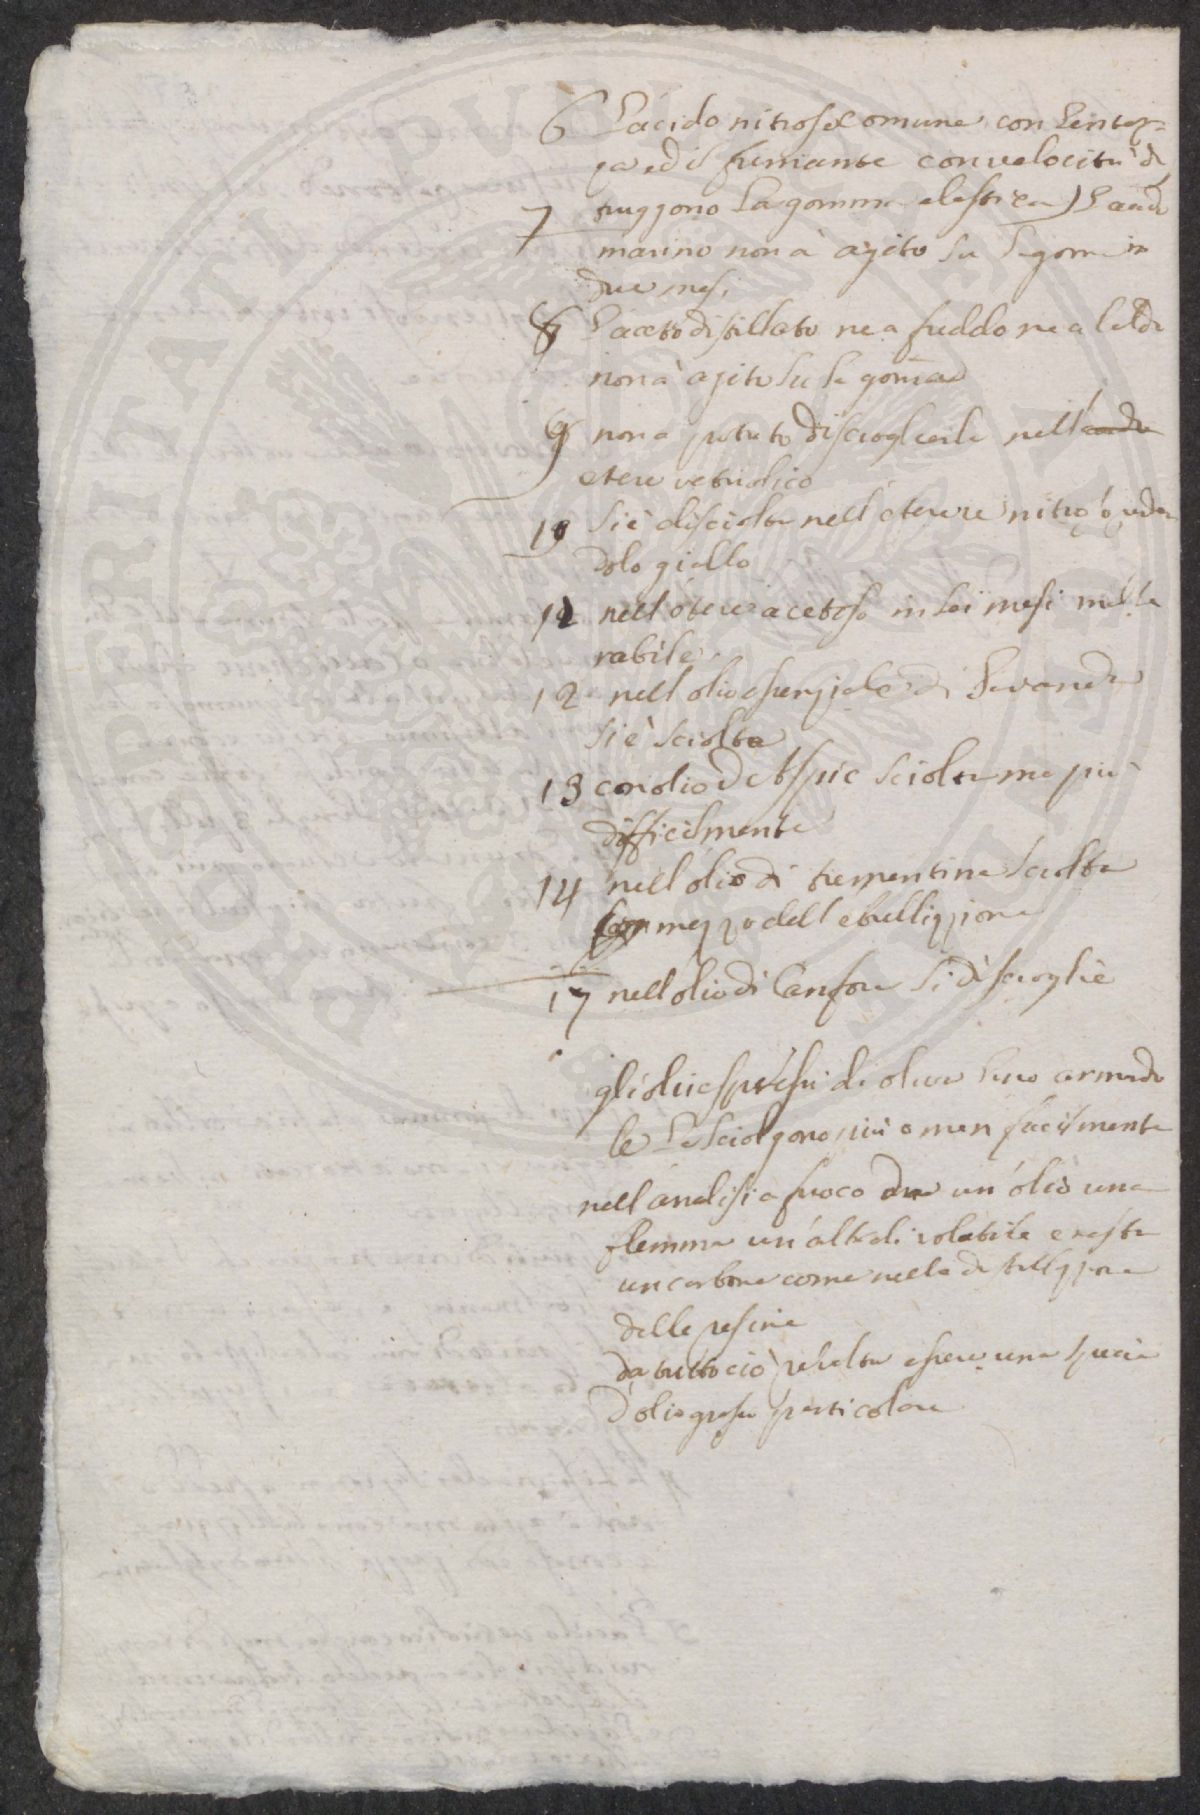 6 L'acido nitroso comune con lentez=
za ed il fumante con velocità di
truggono la gomma elastica) L'acido
7 marino non à agito su la goma in
due mesi
8 L'aceto distillato ne a freddo ne a caldo
non à agito su la goma
9 non a potuto discioglierla nell'
etere vetriolico
10 si è disciolta nell'etere nitroso
dolo giallo
11 nell'etere acetoso in sei mesi
rabile
12 nell olio essenziale di Lavanda
si è sciolta
13 con olio de Aspic sciolta ma più
difficilmente
14 nell'olio di trementina sciolta
mezzo dell ebullizzione
17 nell olio di Canfora si discioglie
gli olii espressi di olive lino
le La sciolgono più o men facilmente
nell'analisi a fuoco da un'olio una
flemma un'alkali volatile e resta
un carbone come nella distillazzione
delle resine
da tutto ciò risulta essere una specie
d'olio grasso particolare